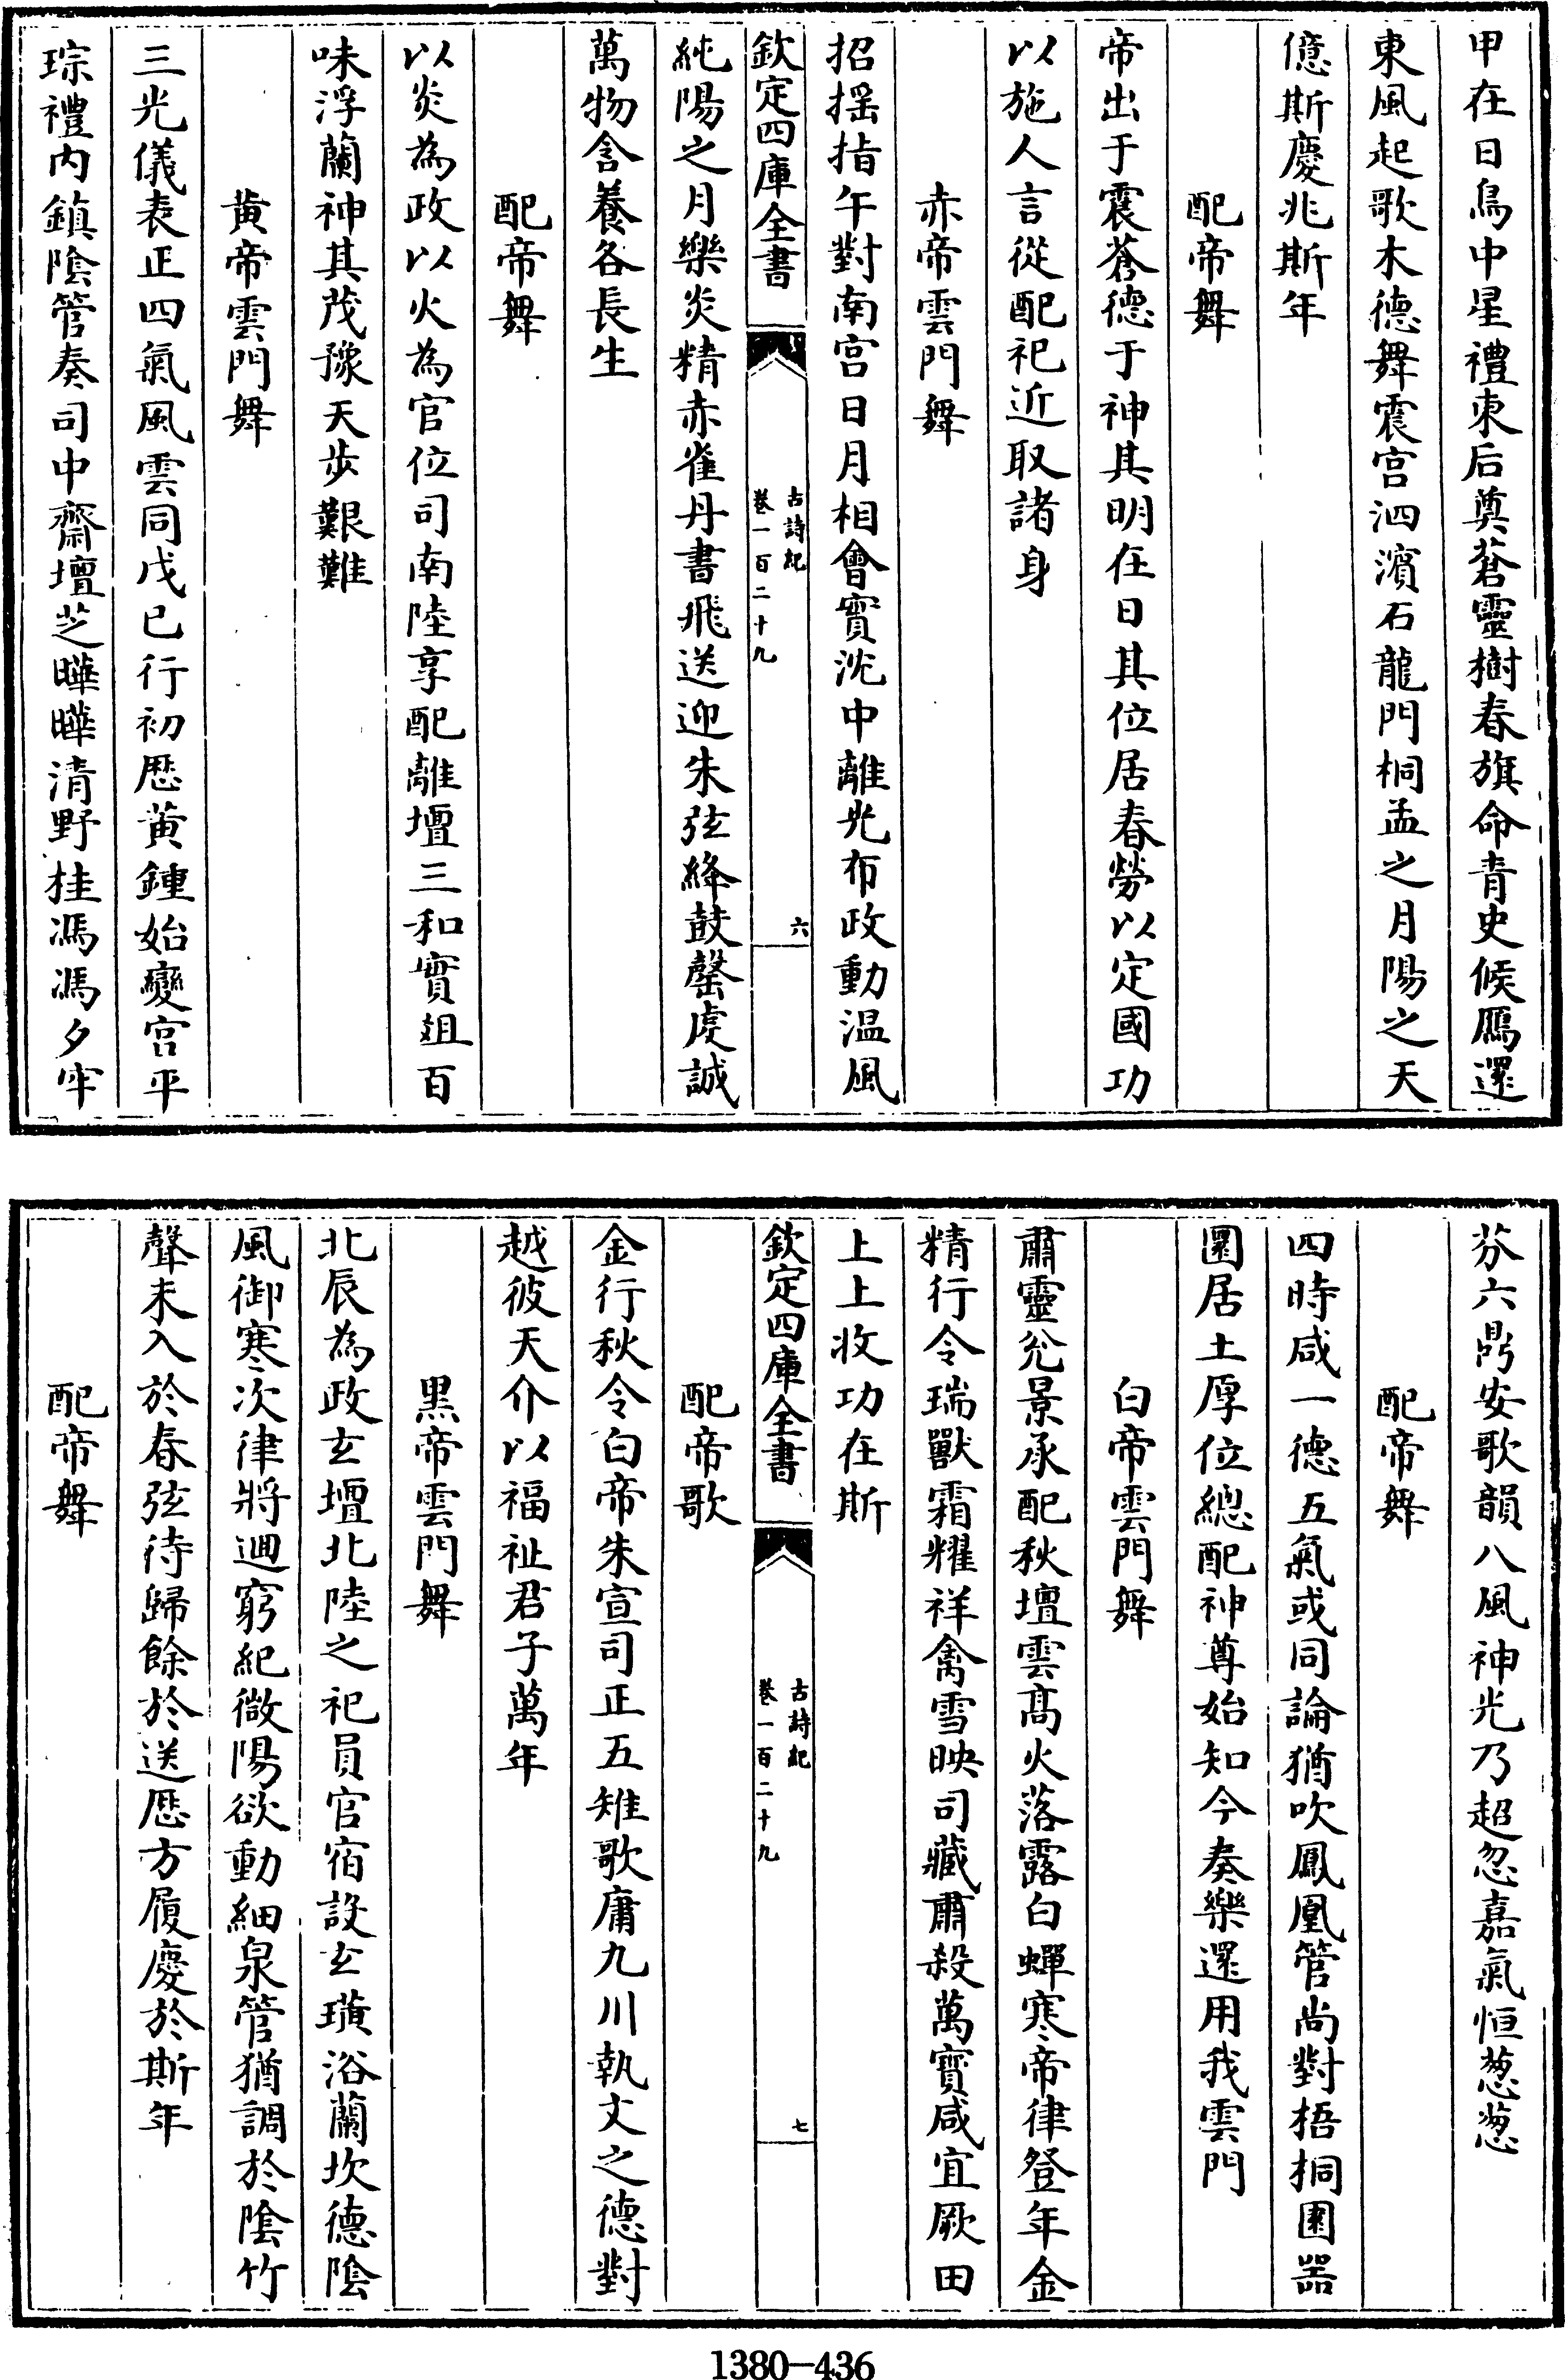 甲在日鳥中星禮東后奠蒼靈樹春旗命青史候鴈還
東風起歌木德舞震宫泗濱石龍門桐孟之月陽之天
億斯慶兆斯年
配帝舞
帝出于震蒼德于神其明在日其位居春勞以定國功
以施人言從配祀近取諸身
赤帝雲門舞
招摇指午對南宫日月相會實沈中離光布政動温風
欽定四庫全書
古詩紀
卷一百二十九
六
純陽之月樂炎精赤雀丹書飛送迎朱弦絳鼓罄虔誠
萬物含養各長生
配帝舞
以炎為政以火為官位司南陸享配離壇三和實俎百
味浮蘭神其茂豫天步艱難
黄帝雲門舞
三光儀表正四氣風雲同戊已行初厯黄鍾始變宫平
琮禮内鎮陰管奏司中齋壇芝曄曄清野桂馮馮夕牢
芬六鼎安歌韻八風神光乃超忽嘉氣恒葱葱
配帝舞
四時咸一德五氣或同論猶吹鳳凰管尚對梧桐園器
圜居土厚位總配神尊始知今奏樂還用我雲門
白帝雲門舞
肅靈兊景承配秋壇雲髙火落露白蟬寒帝律登年金
精行令瑞獸霜耀祥禽雪映司藏肅殺萬寳咸宜厥田
上上收功在斯
欽定四庫全書
古詩紀
卷一百二十九
七
配帝歌
金行秋令白帝朱宣司正五雉歌庸九川執文之德對
越彼天介以福祉君子萬年
黑帝雲門舞
北辰為政玄壇北陸之祀員官宿設玄璜浴蘭坎德陰
風御寒次律將迴窮紀微陽欲動細泉管猶調於陰竹
聲未入於春弦待歸餘於送厯方履慶於斯年
配帝舞
1380-436